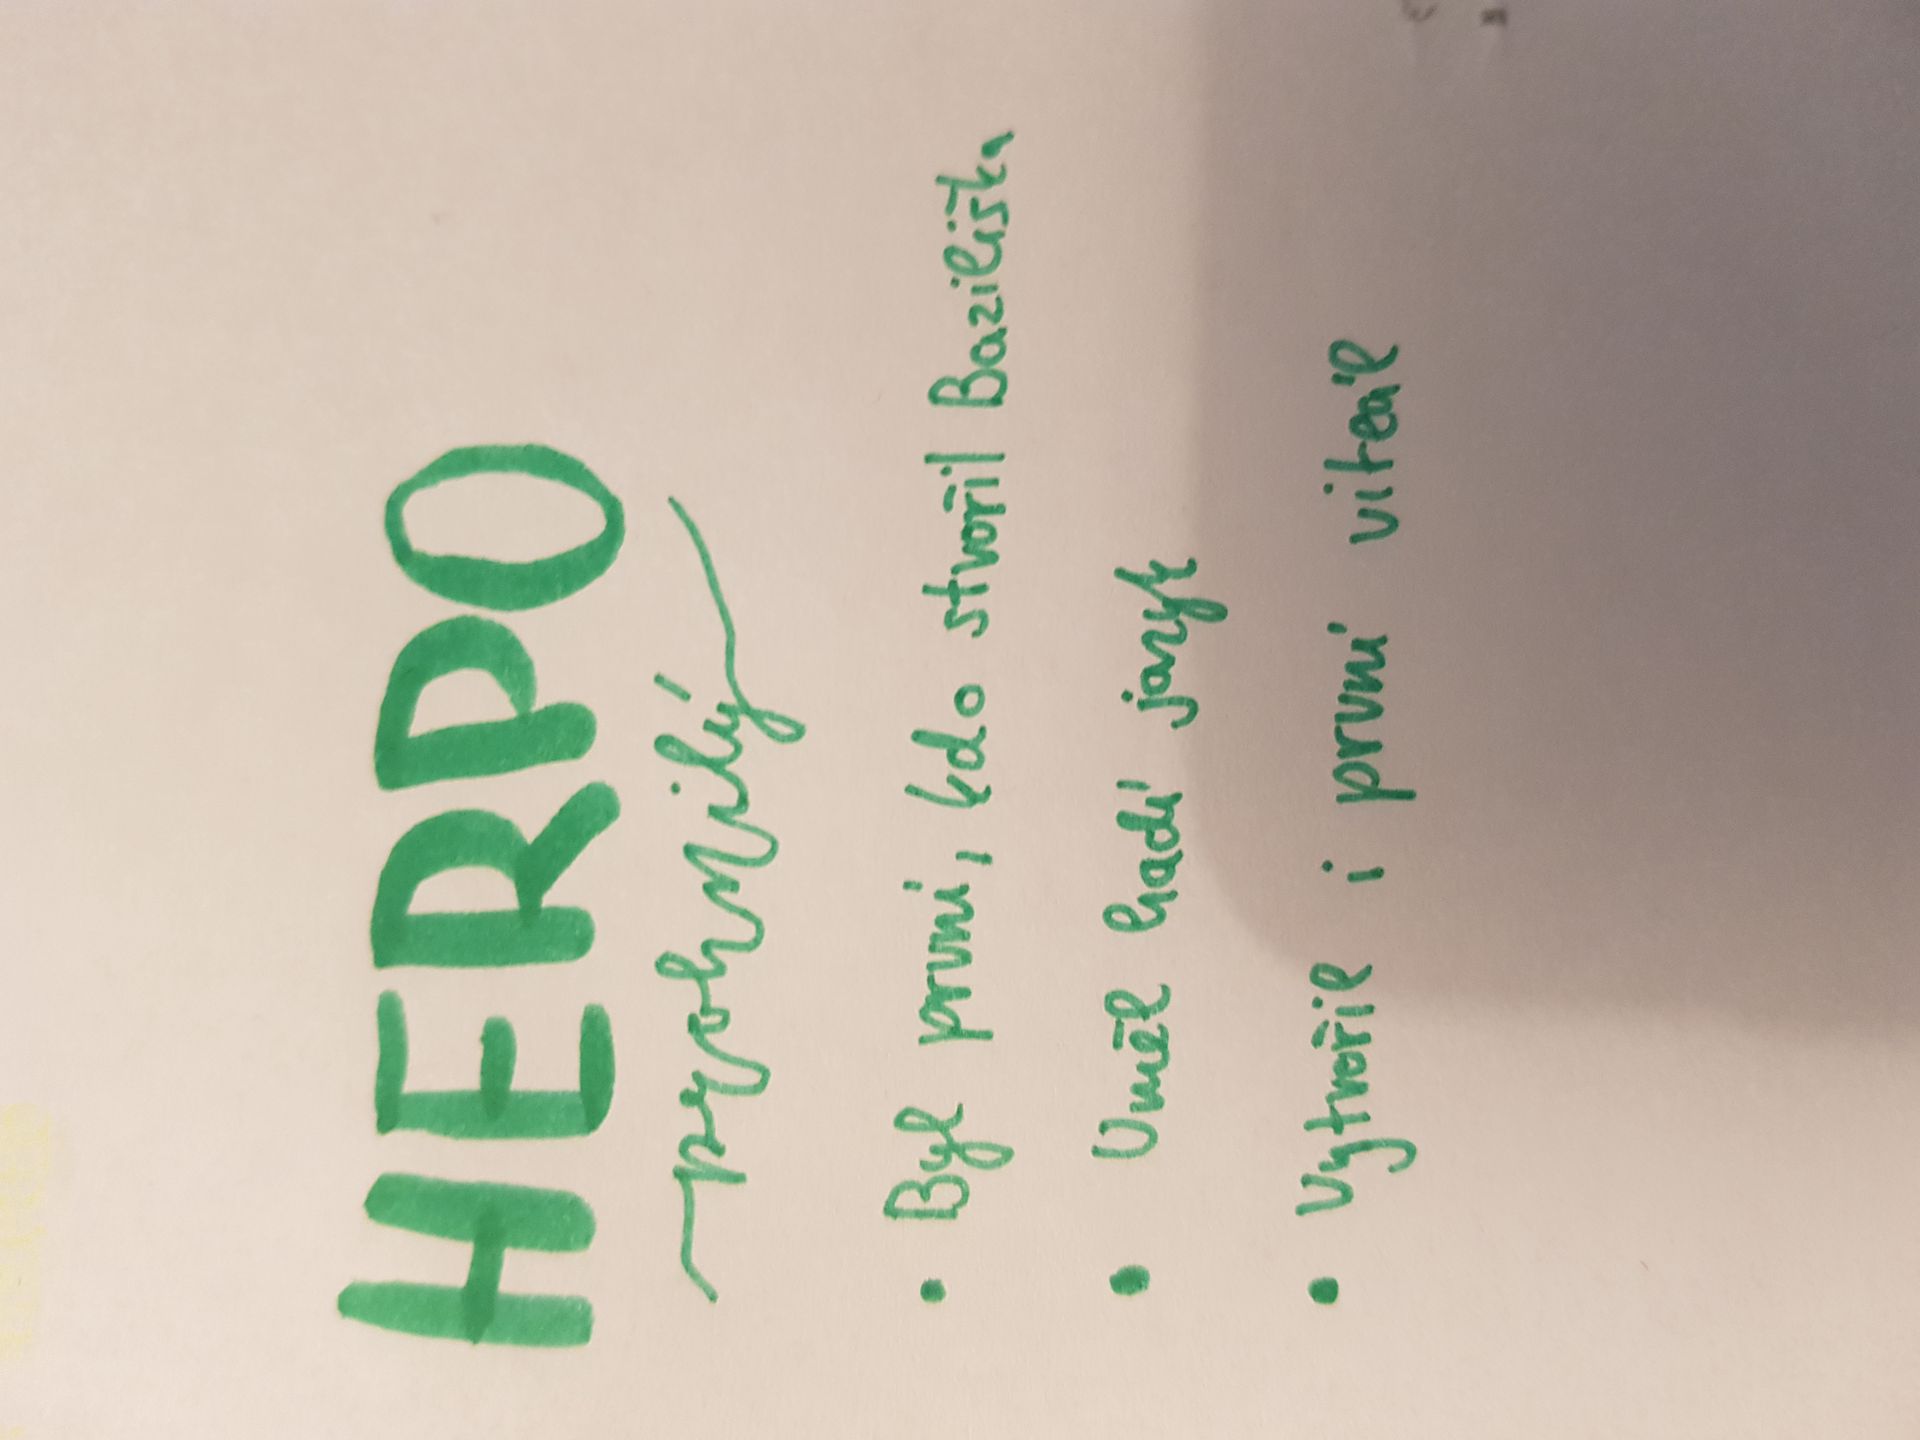 HERPO
prohnilý
• Byl první, kdo stvořil Baziliška
• Uměl hadí jazyk
• Vytvořil i první viteál